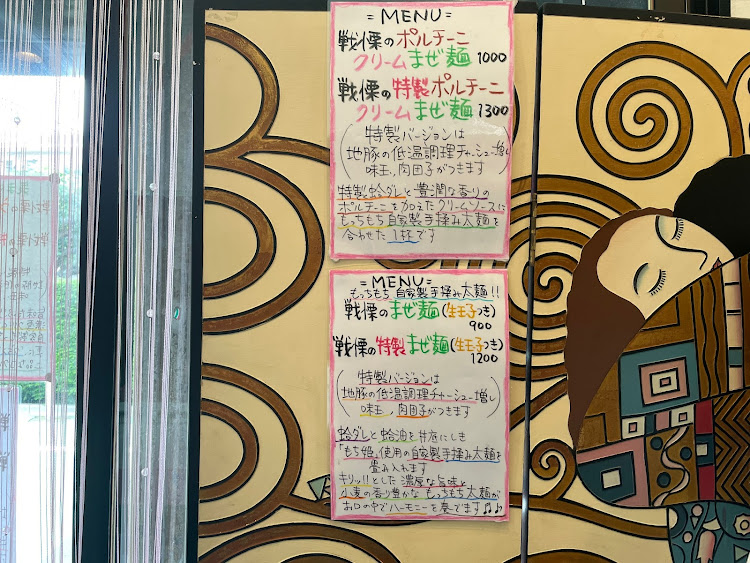 = MENU =
戦慄のポルチーニ
クリームまぜ麺 1000
戦慄の特製ポルチーニ
クリームまぜ麺 1300
(特製バージョンは
地豚の低温調理チャーシュー増し
味玉、肉団子がつきます)
特製蛤ダレと豊潤な香りの
ポルチーニを加えたクリームソースに
もっちもち自家製手揉み太麺を
合わせた1杯です
= MENU =
もっちもち自家製手揉み太麺!!
戦慄のまぜ麺(生玉子つき)
900
戦慄の特製まぜ麺(生玉子つき)
1200
(特製バージョンは
地豚の低温調理チャーシュー増し
味玉、肉団子がつきます)
蛤ダレと蛤油を丼底にしき
「もち姫」使用の自家製手揉み太麺を
畳み入れます
キリッ!!とした濃厚な旨味と
小麦の香り豊かなもっちもち太麺が
お口の中でハーモニーを奏でます♫♪